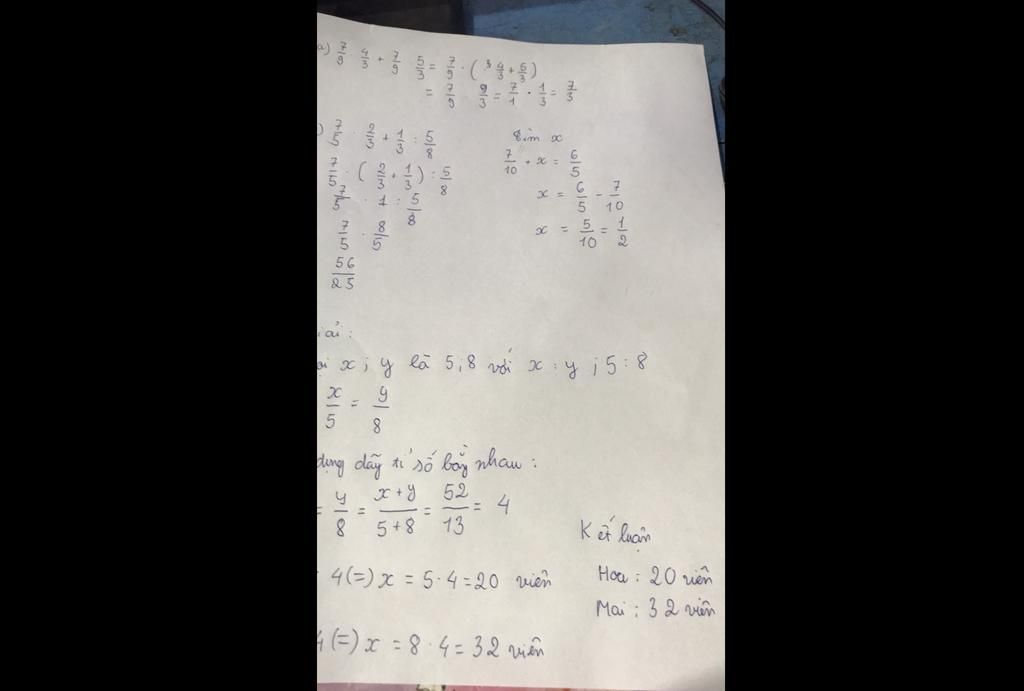 a) 7/9 · 4/3 + 7/9 · 5/3 = 7/9 · (4/3 + 5/3)
= 7/9 · 9/3 = 7/1 · 1/3 = 7/3
) 7/5 · 2/3 + 1/3 : 5/8
7/5 · (2/3 + 1/3) : 5/8
7/5 · 1 : 5/8
7/5 · 8/5
56/25
Tìm x
7/10 + x = 6/5
x = 6/5 - 7/10
x = 5/10 = 1/2
iải :
ọi x ; y là 5 ; 8 với x : y ; 5 : 8
x/5 = y/8
dụng dãy tỉ số bằng nhau :
= y/8 = x+y/5+8 = 52/13 = 4
4 (=) x = 5 · 4 = 20 viên
4 (=) x = 8 · 4 = 32 viên
Kết luận
Hoa : 20 viên
Mai : 32 viên